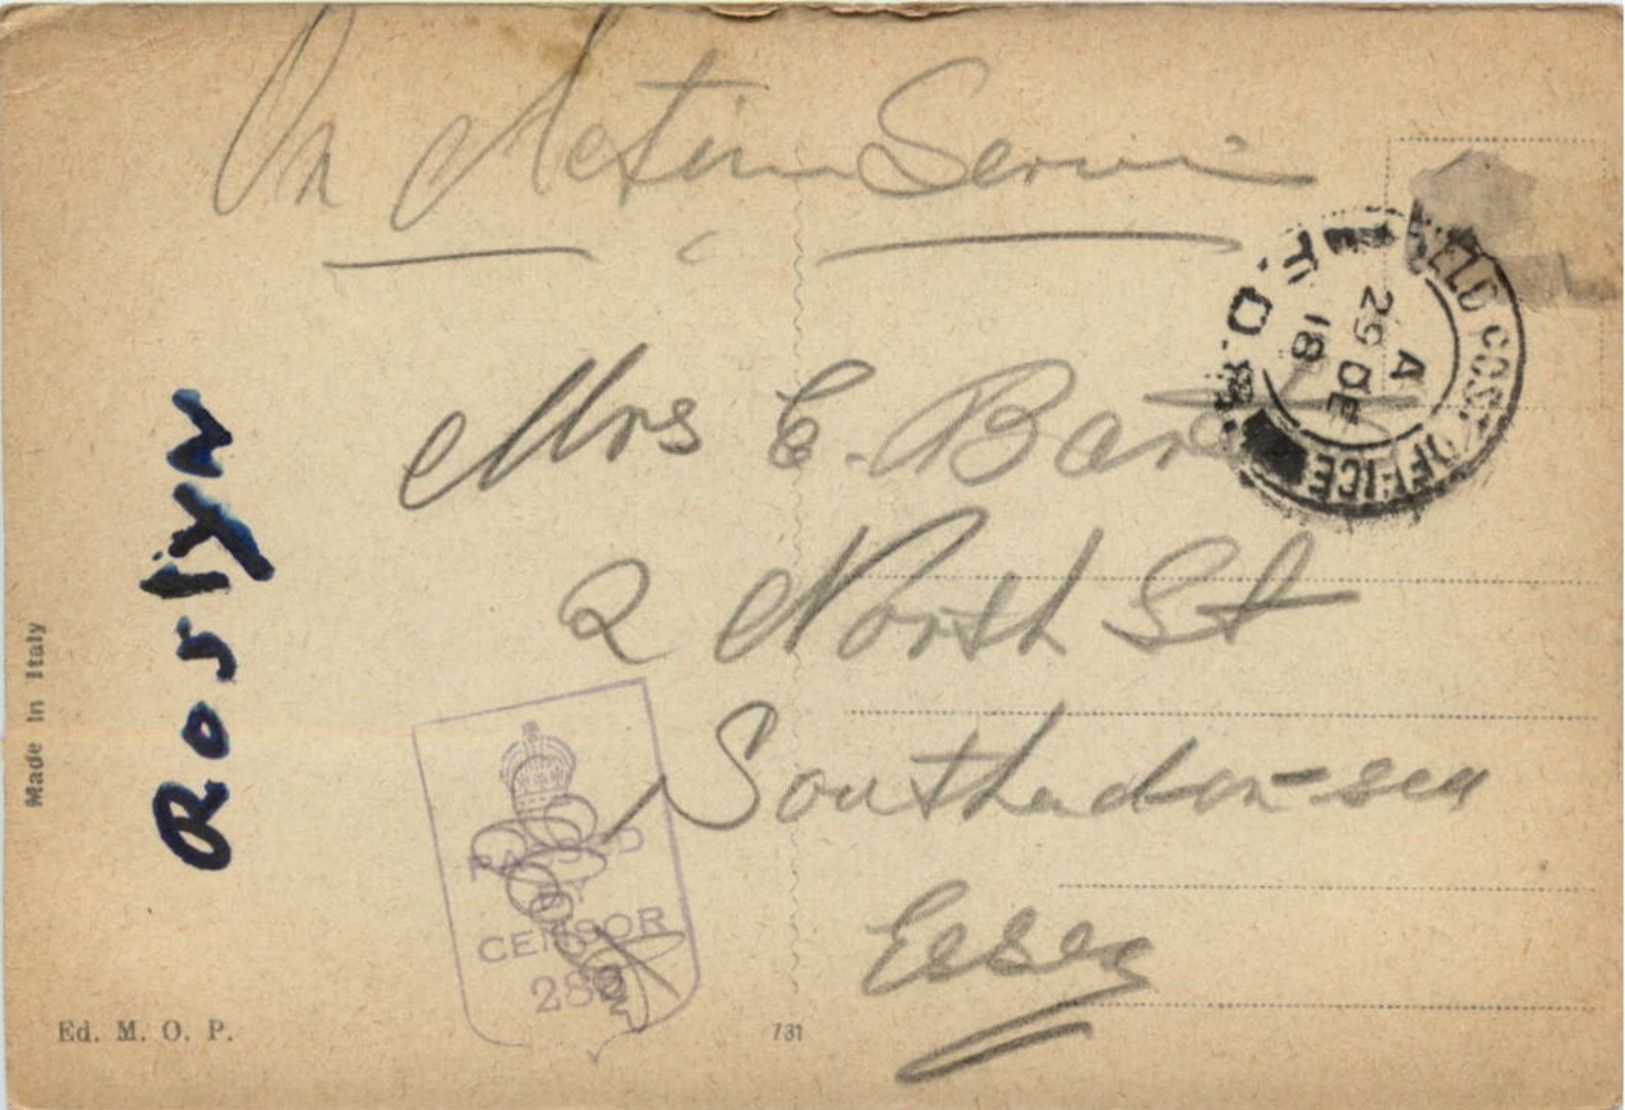 On Active Service
Mrs E. Bar
2 North St
Southend-on-sea
Essex
FIELD POST OFFICE
A
29 DE
18
PASSED
BY
CENSOR
Roslyn
Made in Italy
Ed. M. O. P.
731